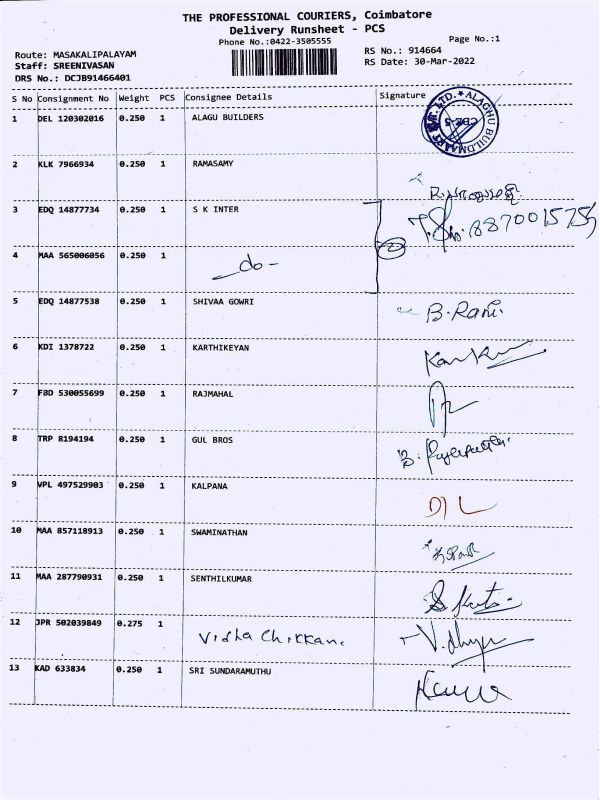 THE PROFESSIONAL COURIERS, Coimbatore
Delivery Runsheet - PCS
Phone No.:0422-3505555
Page No.:1
Route: MASAKALIPALAYAM
RS No.: 914664
Staff: SREENIVASAN
RS Date: 30-Mar-2022
DRS No.: DCJB91466401
S No Consignment No Weight PCS Consignee Details Signature
1 DEL 120302016 0.250 1 ALAGU BUILDERS
2 KLK 7966934 0.250 1 RAMASAMY
3 EDQ 14877734 0.250 1 S K INTER 8870015759
4 MAA 565006056 0.250 1 -do- 2
5 EDQ 14877538 0.250 1 SHIVAA GOWRI B. Rani.
6 KDI 1378722 0.250 1 KARTHIKEYAN
7 FBD 530055699 0.250 1 RAJMAHAL
8 TRP 8194194 0.250 1 GUL BROS
9 VPL 497529903 0.250 1 KALPANA
10 MAA 857118913 0.250 1 SWAMINATHAN
11 MAA 287790931 0.250 1 SENTHILKUMAR
12 JPR 502039849 0.275 1 Vidha Chikkan. V. dhya
13 KAD 633834 0.250 1 SRI SUNDARAMUTHU